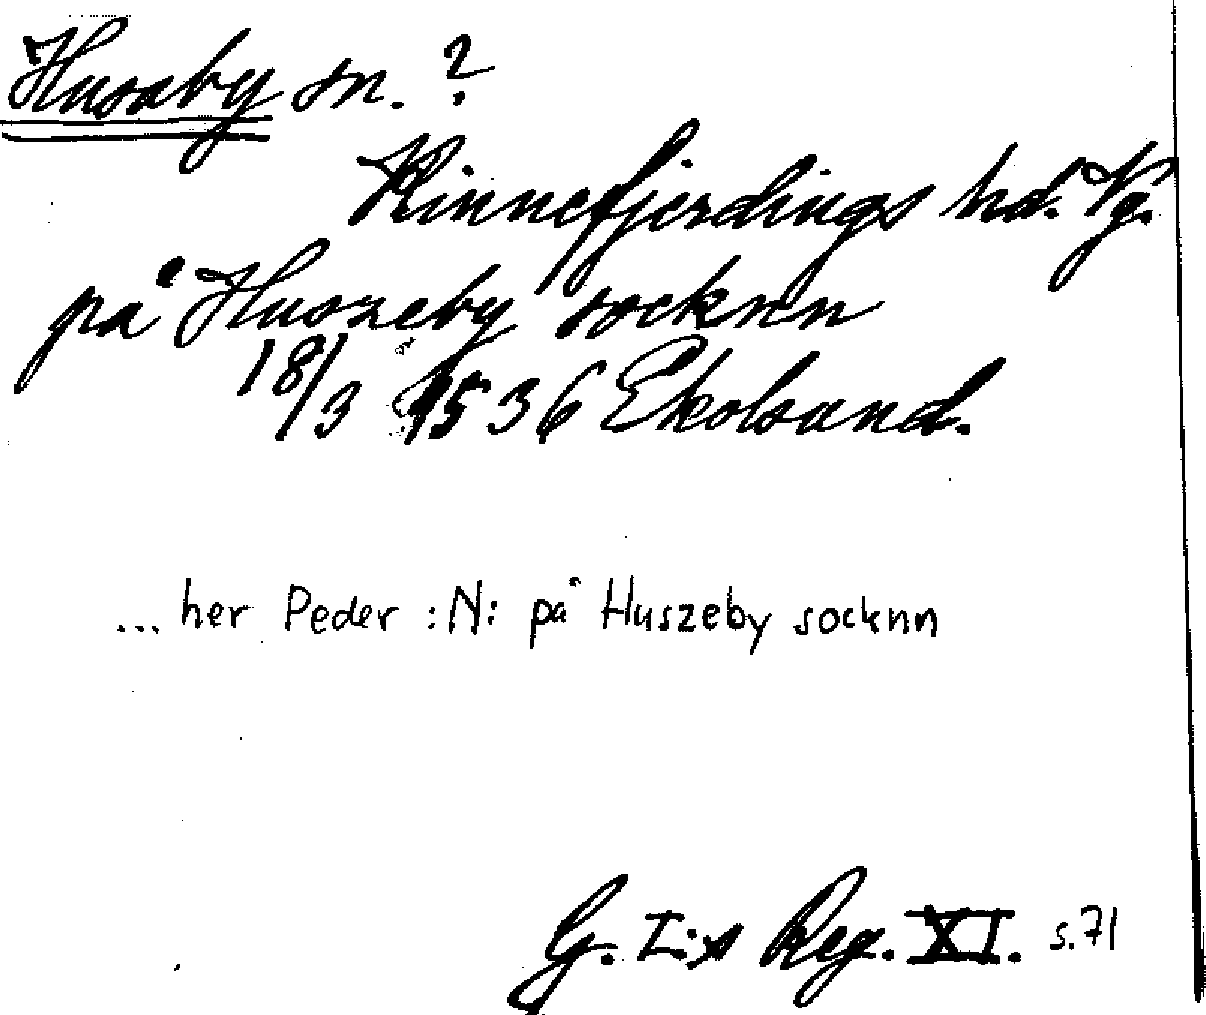 Husaby sn. ?
Kinnefjerdings hd. Vg.
på Huszeby socknn
18/3 1536 Ekolsund.
... her Peder :N: på Huszeby socknn
G. I:s Reg. XI. s.71